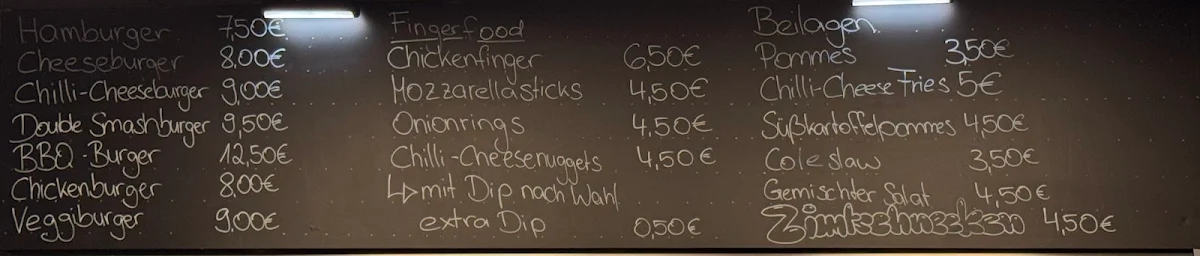 Hamburger 7,50€
Cheeseburger 8,00€
Chilli-Cheeseburger 9,00€
Double Smashburger 9,50€
BBQ-Burger 12,50€
Chickenburger 8,00€
Veggiburger 9,00€
Fingerfood
Chickenfinger 6,50€
Mozzarellasticks 4,50€
Onionrings 4,50€
Chilli-Cheesenuggets 4,50€
↳ mit Dip nach Wahl
extra Dip 0,50€
Beilagen
Pommes 3,50€
Chilli-Cheese Fries 5€
Süßkartoffelpommes 4,50€
Coleslaw 3,50€
Gemischter Salat 4,50€
Zimtschnecken 4,50€